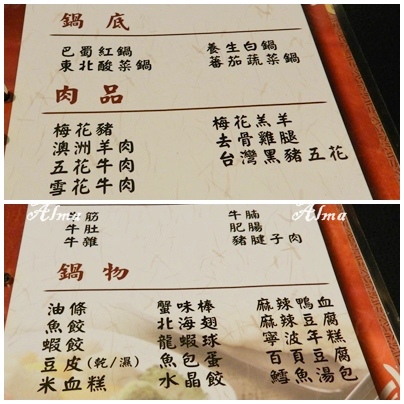 鍋底
巴蜀紅鍋 養生白鍋
東北酸菜鍋 蕃茄蔬菜鍋
肉品
梅花豬 梅花羔羊
澳洲羊肉 去骨雞腿
五花牛肉 台灣黑豬五花
雪花牛肉
Alma Alma
牛筋 牛腩
牛肚 肥腸
牛雜 豬腱子肉
鍋物
油條 蟹味棒 麻辣鴨血
魚餃 北海翅 麻辣豆腐
蝦餃 龍蝦球 寧波年糕
豆皮(乾/濕) 魚包蛋 百頁豆腐
米血糕 水晶餃 鱈魚湯包